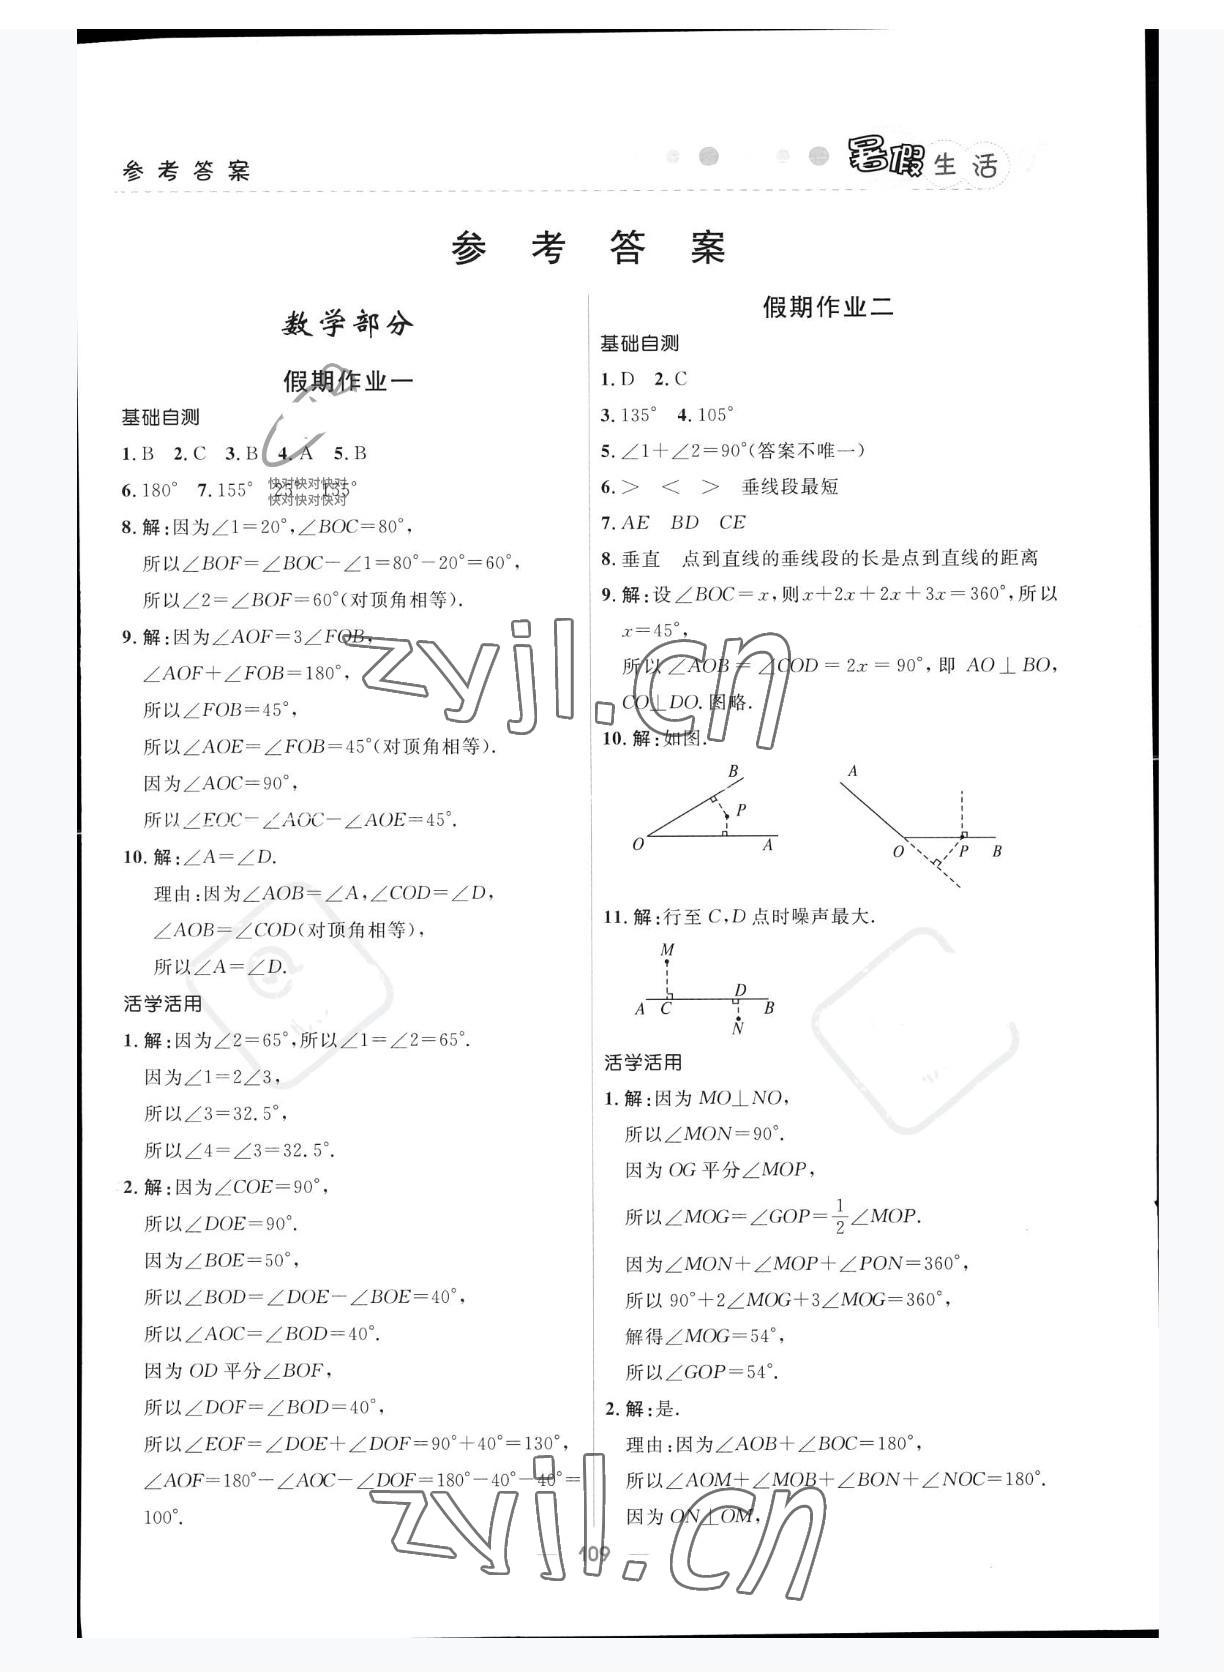 参考答案
暑假生活
参 考 答 案
数学部分
假期作业一
基础自测
1. B 2. C 3. B 4. A 5. B
6. 180° 7. 155° 25° 155°
快对快对快对
快对快对快对
8. 解:因为∠1=20°,∠BOC=80°,
所以∠BOF=∠BOC-∠1=80°-20°=60°,
所以∠2=∠BOF=60°(对顶角相等).
9. 解:因为∠AOF=3∠FOB,
∠AOF+∠FOB=180°,
所以∠FOB=45°,
所以∠AOE=∠FOB=45°(对顶角相等).
因为∠AOC=90°,
所以∠EOC=∠AOC-∠AOE=45°.
10. 解:∠A=∠D.
理由:因为∠AOB=∠A,∠COD=∠D,
∠AOB=∠COD(对顶角相等),
所以∠A=∠D.
活学活用
1. 解:因为∠2=65°,所以∠1=∠2=65°.
因为∠1=2∠3,
所以∠3=32.5°,
所以∠4=∠3=32.5°.
2. 解:因为∠COE=90°,
所以∠DOE=90°.
因为∠BOE=50°,
所以∠BOD=∠DOE-∠BOE=40°,
所以∠AOC=∠BOD=40°.
因为 OD 平分∠BOF,
所以∠DOF=∠BOD=40°,
所以∠EOF=∠DOE+∠DOF=90°+40°=130°,
∠AOF=180°-∠AOC-∠DOF=180°-40°-40°=
100°.
假期作业二
基础自测
1. D 2. C
3. 135° 4. 105°
5. ∠1+∠2=90°(答案不唯一)
6. > < > 垂线段最短
7. AE BD CE
8. 垂直 点到直线的垂线段的长是点到直线的距离
9. 解:设∠BOC=x,则x+2x+2x+3x=360°,所以
x=45°,
所以∠AOB=∠COD=2x=90°,即 AO⊥BO,
CO⊥DO.图略.
10. 解:如图.
B
P
O
A
A
O
P
B
11. 解:行至 C,D 点时噪声最大.
M
A
C
D
B
N
活学活用
1. 解:因为 MO⊥NO,
所以∠MON=90°.
因为 OG 平分∠MOP,
所以∠MOG=∠GOP=1/2∠MOP.
因为∠MON+∠MOP+∠PON=360°,
所以 90°+2∠MOG+3∠MOG=360°,
解得∠MOG=54°,
所以∠GOP=54°.
2. 解:是.
理由:因为∠AOB+∠BOC=180°,
所以∠AOM+∠MOB+∠BON+∠NOC=180°.
因为 ON⊥OM,
109
zyjl.cn
zyjl.cn